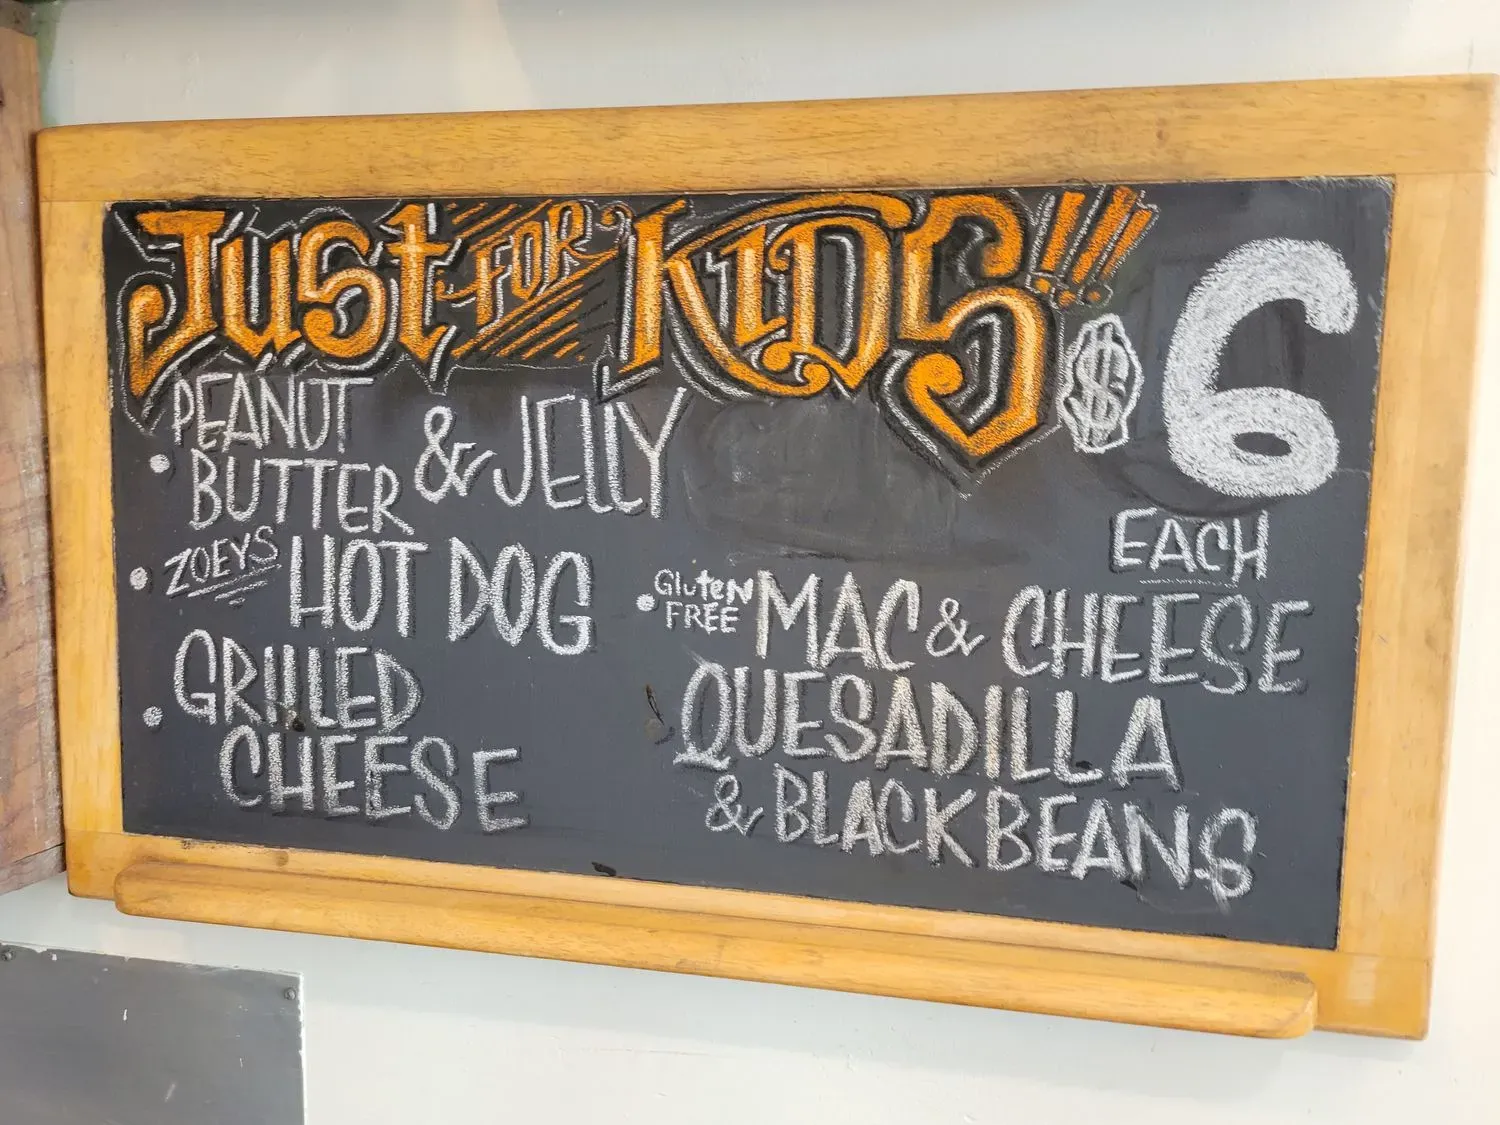 Just FOR KIDS!!! $6
EACH
• PEANUT
BUTTER & JELLY
• ZOEYS HOT DOG
• GRILLED
CHEESE
• GLuteN
FREE MAC & CHEESE
QUESADILLA
& BLACK BEANS